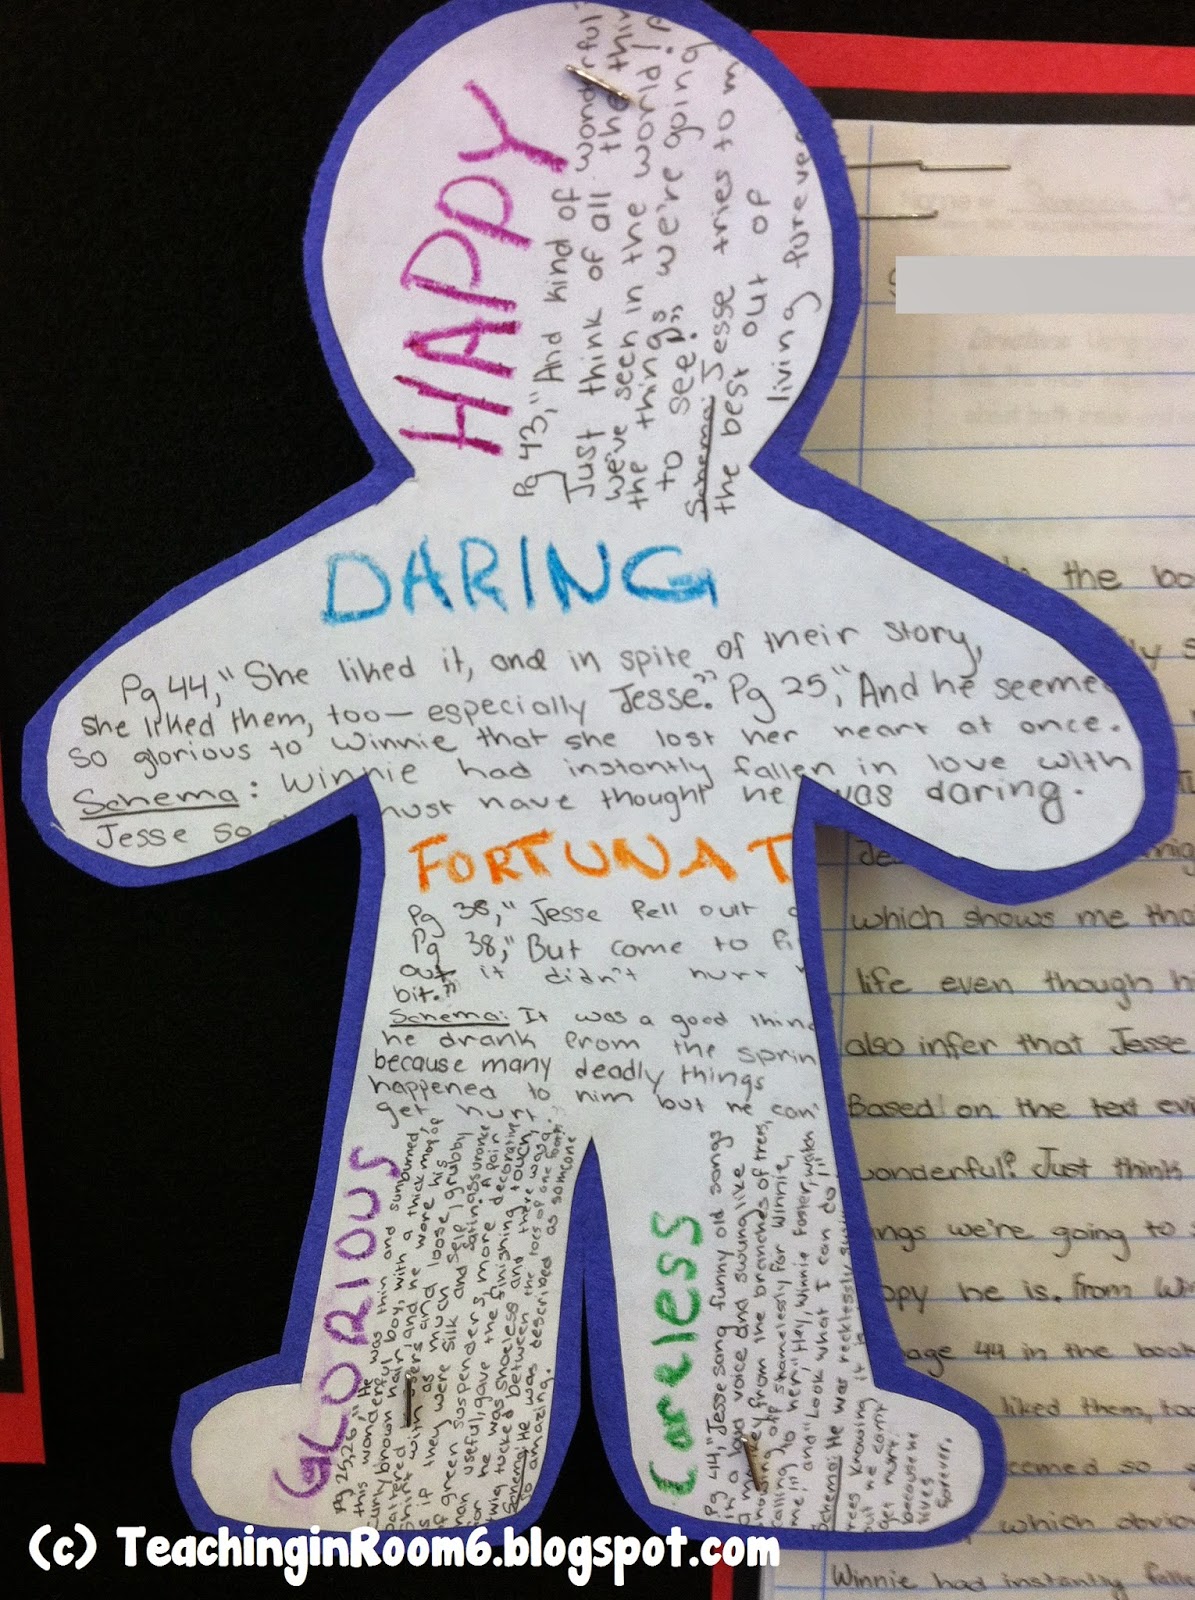 HAPPY
Pg 43, "And kind of wonderful
Just think of all the thin
we've seen in the world!
the things we're going
to see!"
Schema: Jesse tries to m
the best out of
living forever
DARING
Pg 44, "She liked it, and in spite of their story,
she liked them, too— especially Jesse." Pg 25, "And he seeme
so glorious to Winnie that she lost her heart at once.
Schema: Winnie had instantly fallen in love with
Jesse so
must have thought he was daring.
FORTUNAT
Pg 38, "Jesse fell out
Pg 38, "But come to fi
out it didn't hurt
bit."
Schema: It was a good thing
he drank from the sprin
because many deadly things
happened to him but he can
get hurt.
GLORIOUS
Pg 25,26 "He was thin and sunburned,
this wonderful boy, with a thick mop of
curly brown hair, and he wore his
battered
shirt with as much
as if they were silk and satin.
of green suspenders, more decorative
than useful, gave the finishing touch,
he was shoeless and there was a
twig tucked between the toes of one foot."
Schema: He was described as someone
to amazing.
Careless
Pg 44, "Jesse sang funny old songs
in a loud voice and swung like
a monkey from the branches of trees,
showing off shamelessly for Winnie,
calling to her, "Hey, Winnie Foster, watch
me!" and "Look what I can do!"
Schema: He was recklessly
trees knowing it is
but he cant
get hurt
because he
lives
forever.
the bo
which shows me tha
life even though h
also infer that Jesse
Based on the text evi
wonderful? Just think
ings we're going to
ppy he is. From Wi
age 44 in the book
liked them, too
eemed so
which obvio
Winnie had instantly falle
(c) TeachinginRoom6.blogspot.com